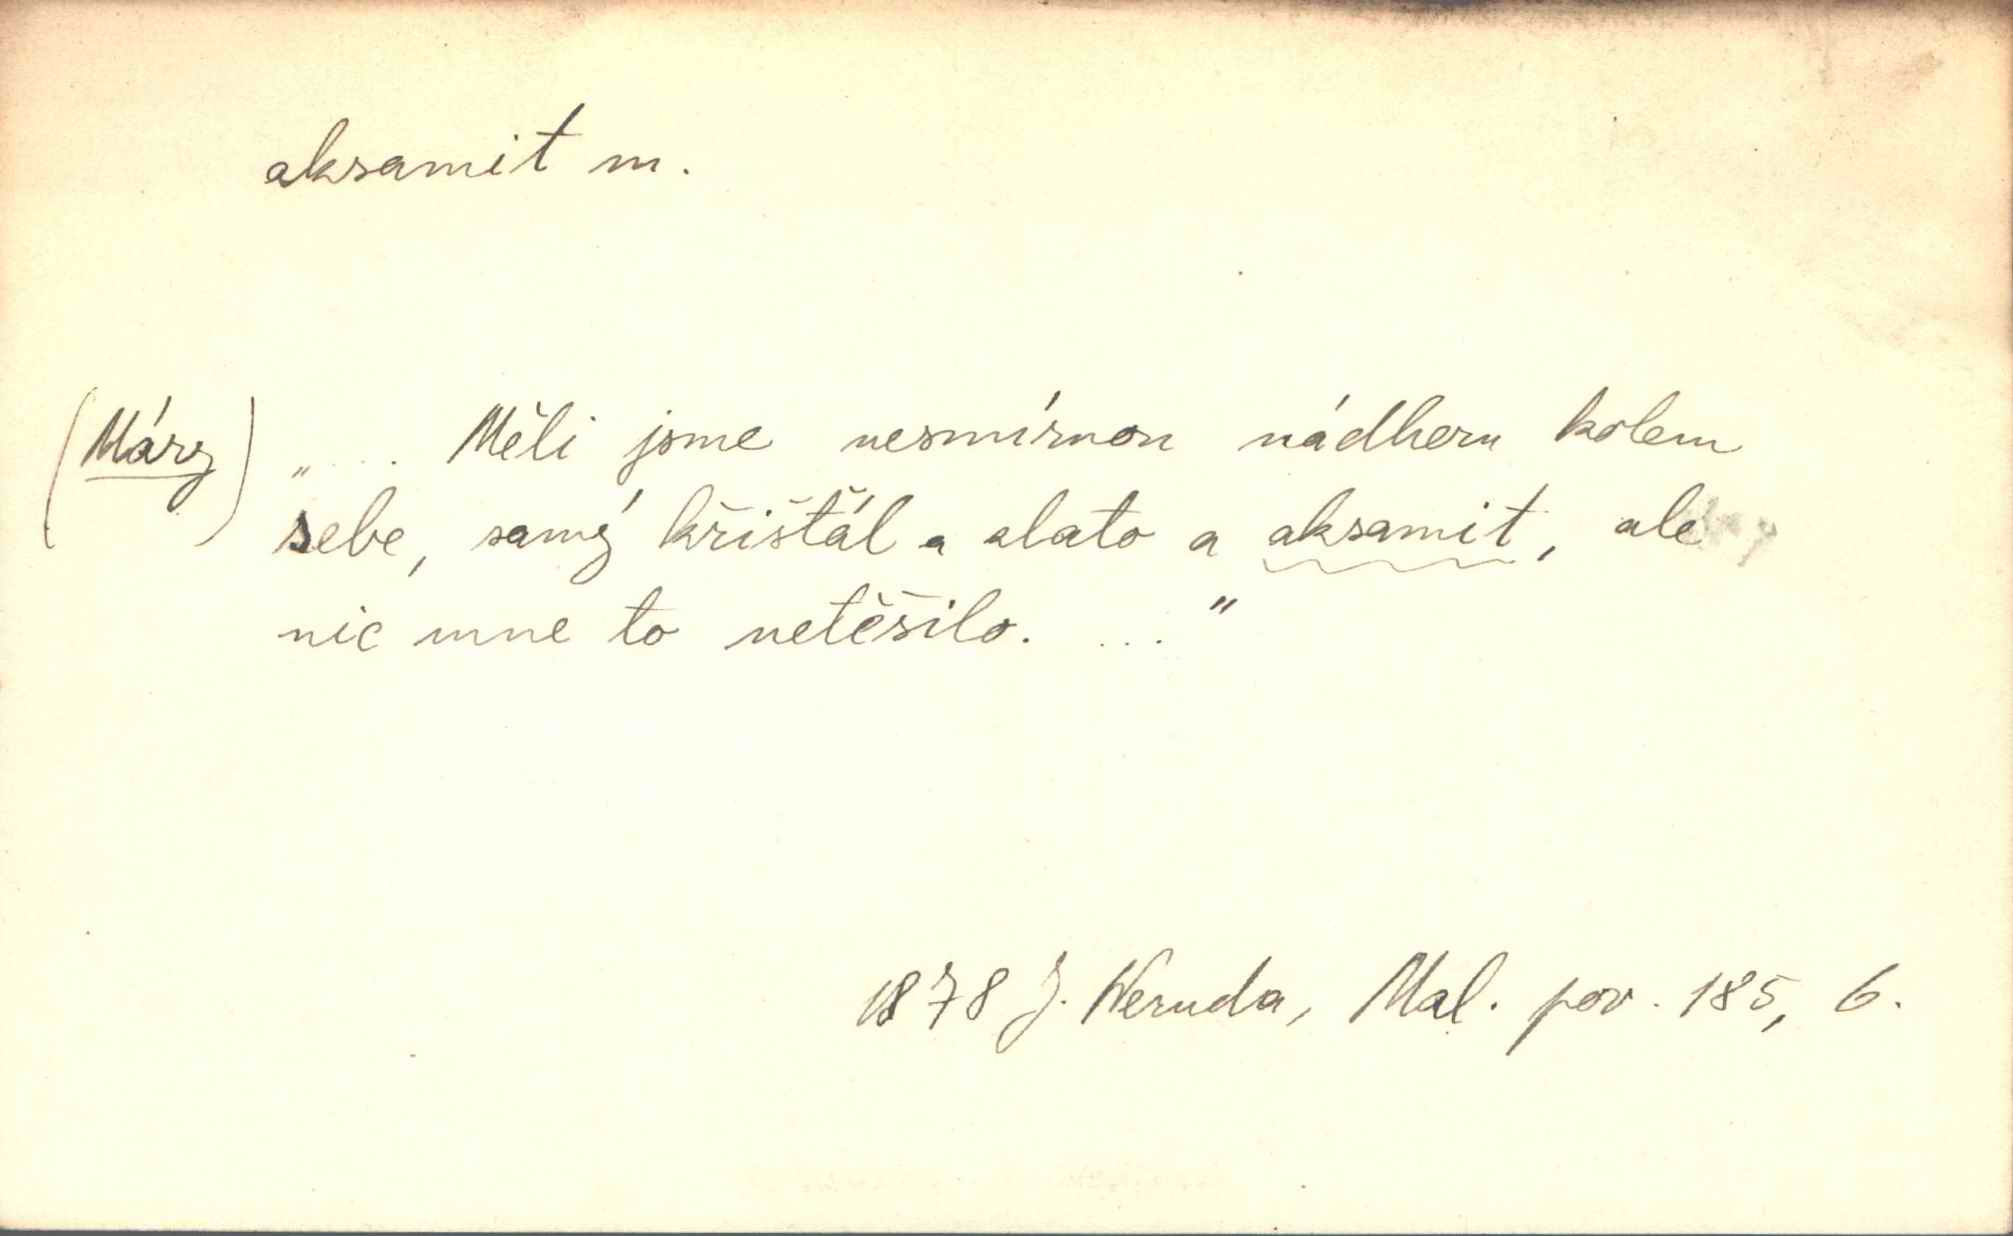 aksamit m.
(Márz) „ ... Měli jsme nesmírnou nádheru kolem
sebe, samý křišťál a zlato a aksamit, ale
nic mne to netěšilo. ..."
1878 J. Neruda, Mal. pov. 185, 6.